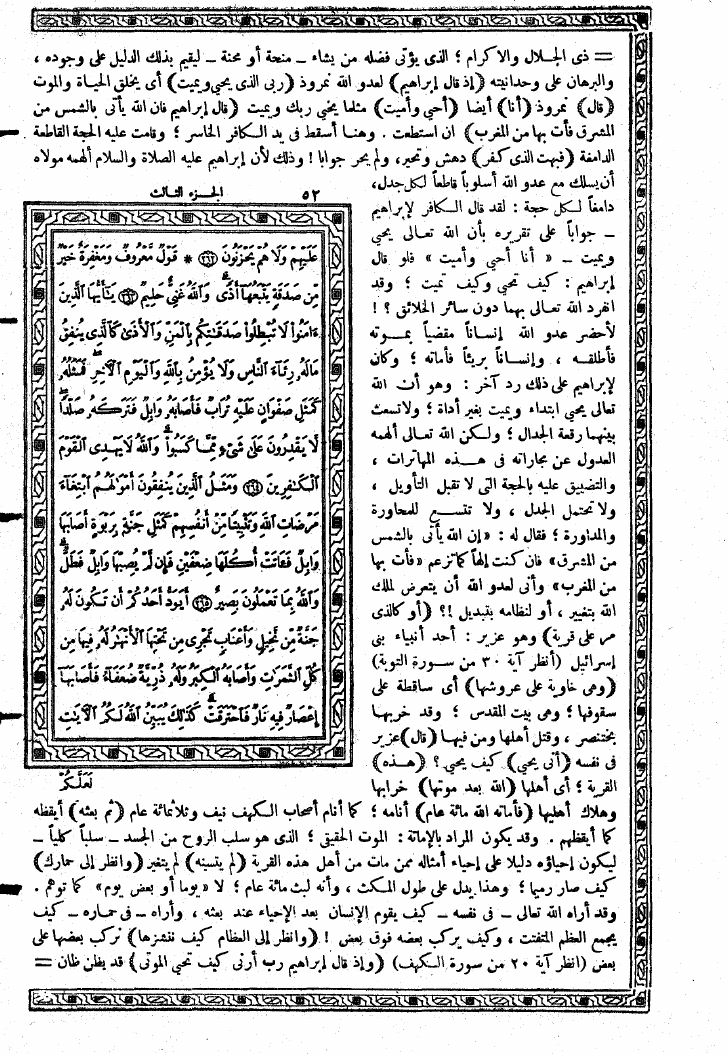 = ذى الجلال والاكرام ؛ الذى يؤتى فضله من يشاء ــ منحة أو محنة ــ ليقيم بذلك الدليل على وجوده ،
والبرهان على وحدانيته (إذ قال إبراهيم) لعدو الله نمروذ (ربى الذى يحيى ويميت) أى يخلق الحياة والموت
(قال) نمروذ (أنا) أيضا (أحيى وأميت) مثلما يحيى ربك ويميت (قال إبراهيم فان الله يأتى بالشمس من
المشرق فأت بها من المغرب) ان استطعت . وهنا أسقط فى يد الكافر الخاسر ؛ وقامت عليه الحجة القاطعة
الدامغة (فبهت الذى كفر) دهش وتحير، ولم يحر جوابا ! وذلك لأن إبراهيم عليه الصلاة والسلام ألهمه مولاه
أن يسلك مع عدو الله أسلوباً قاطعاً لكل جدل،
دامغاً لكل حجة : لقد قال الكافر لإبراهيم
ــ جواباً على تقريره بأن الله تعالى يحيى
ويميت ــ « أنا أحيى وأميت » فلو قال
إبراهيم : كيف تحيى وكيف تميت ؛ وقد
انفرد الله تعالى بهما دون سائر الخلائق ؟ !
لأحضر عدو الله إنساناً مقضياً بموته
فأطلقه ، وإنساناً بريئاً فأماته ؛ وكان
لإبراهيم على ذلك رد آخر : وهو أن الله
تعالى يحيى ابتداء ويميت بغير أداة ؛ ولاتسعت
بينهما رقعة الجدال ؛ ولكن الله تعالى ألهمه
العدول عن مجاراته فى هذه المهاترات ،
والتضييق عليه بالحجة التى لا تقبل التأويل ،
ولا تحتمل الجدل ، ولا تتسع للمحاورة
والمداورة ؛ فقال له : «إن الله يأتى بالشمس
من المشرق» فان كنت إلهاً كما تزعم «فأت بها
من المغرب» وأنى لعدو الله أن يتعرض لملك
الله بتغيير ، أو لنظامه بتبديل !؟ (أو كالذى
مر على قرية) وهو عزير : أحد أنبياء بنى
إسرائيل (أنظر آية ٣٠ من سورة التوبة)
(وهى خاوية على عروشها) أى ساقطة على
سقوفها ؛ وهى بيت المقدس ؛ وقد خربها
بختنصر ، وقتل أهلها ومن فيها (قال) عزير
فى نفسه (أنى يحيى) كيف يحيى ؟ (هذه)
القرية ؛ أى أهلها (الله بعد موتها) خرابها
الجزء الثالث ٥٢
عَلَيْهِمْ وَلَا هُمْ يَحْزَنُونَ ۝٢٦٢ * قَوْلٌ مَّعْرُوفٌ وَمَغْفِرَةٌ خَيْرٌ
مِّن صَدَقَةٍ يَتْبَعُهَآ أَذًى ۗ وَٱللَّهُ غَنِىٌّ حَلِيمٌ ۝٢٦٣ يَٰٓأَيُّهَا ٱلَّذِينَ
ءَامَنُوا۟ لَا تُبْطِلُوا۟ صَدَقَٰتِكُم بِٱلْمَنِّ وَٱلْأَذَىٰ كَٱلَّذِى يُنفِقُ
مَالَهُۥ رِئَآءَ ٱلنَّاسِ وَلَا يُؤْمِنُ بِٱللَّهِ وَٱلْيَوْمِ ٱلْءَاخِرِ ۖ فَمَثَلُهُۥ
كَمَثَلِ صَفْوَانٍ عَلَيْهِ تُرَابٌ فَأَصَابَهُۥ وَابِلٌ فَتَرَكَهُۥ صَلْدًا ۖ
لَّا يَقْدِرُونَ عَلَىٰ شَىْءٍ مِّمَّا كَسَبُوا۟ ۗ وَٱللَّهُ لَا يَهْدِى ٱلْقَوْمَ
ٱلْكَٰفِرِينَ ۝٢٦٤ وَمَثَلُ ٱلَّذِينَ يُنفِقُونَ أَمْوَٰلَهُمُ ٱبْتِغَآءَ
مَرْضَاتِ ٱللَّهِ وَتَثْبِيتًا مِّنْ أَنفُسِهِمْ كَمَثَلِ جَنَّةٍۭ بِرَبْوَةٍ أَصَابَهَا
وَابِلٌ فَـَٔاتَتْ أُكُلَهَا ضِعْفَيْنِ فَإِن لَّمْ يُصِبْهَا وَابِلٌ فَطَلٌّ ۗ
وَٱللَّهُ بِمَا تَعْمَلُونَ بَصِيرٌ ۝٢٦٥ أَيَوَدُّ أَحَدُكُمْ أَن تَكُونَ لَهُۥ
جَنَّةٌ مِّن نَّخِيلٍ وَأَعْنَابٍ تَجْرِى مِن تَحْتِهَا ٱلْأَنْهَٰرُ لَهُۥ فِيهَا مِن
كُلِّ ٱلثَّمَرَٰتِ وَأَصَابَهُ ٱلْكِبَرُ وَلَهُۥ ذُرِّيَّةٌ ضُعَفَآءُ فَأَصَابَهَآ
إِعْصَارٌ فِيهِ نَارٌ فَٱحْتَرَقَتْ ۗ كَذَٰلِكَ يُبَيِّنُ ٱللَّهُ لَكُمُ ٱلْءَايَٰتِ
لَعَلَّكُمْ
وهلاك أهليها (فأماته الله مائة عام) أنامه ؛ كما أنام أصحاب الكهف نيف وثلاثمائة عام (ثم بعثه) أيقظه
كما أيقظهم . وقد يكون المراد بالإماتة : الموت الحقيقى ؛ الذى هو سلب الروح من الجسد ــ سلباً كلياً ــ
ليكون إحياؤه دليلا على إحياء أمثاله ممن مات من أهل هذه القرية (لم يتسنه) لم يتغير (وانظر إلى حمارك)
كيف صار رميما ؛ وهذا يدل على طول المكث ، وأنه لبث مائة عام ؛ لا «يوما أو بعض يوم» كما توهم .
وقد أراه الله تعالى ــ فى نفسه ــ كيف يقوم الإنسان بعد الإحياء عند بعثه ، وأراه ــ فى حماره ــ كيف
يجمع العظم المتفتت ، وكيف يركب بعضه فوق بعض ! (وانظر إلى العظام كيف ننشزها) نركب بعضها على
بعض (انظر آية ٢٠ من سورة الكهف) (وإذ قال إبراهيم رب أرنى كيف تحيى الموتى) قد يظن ظان =